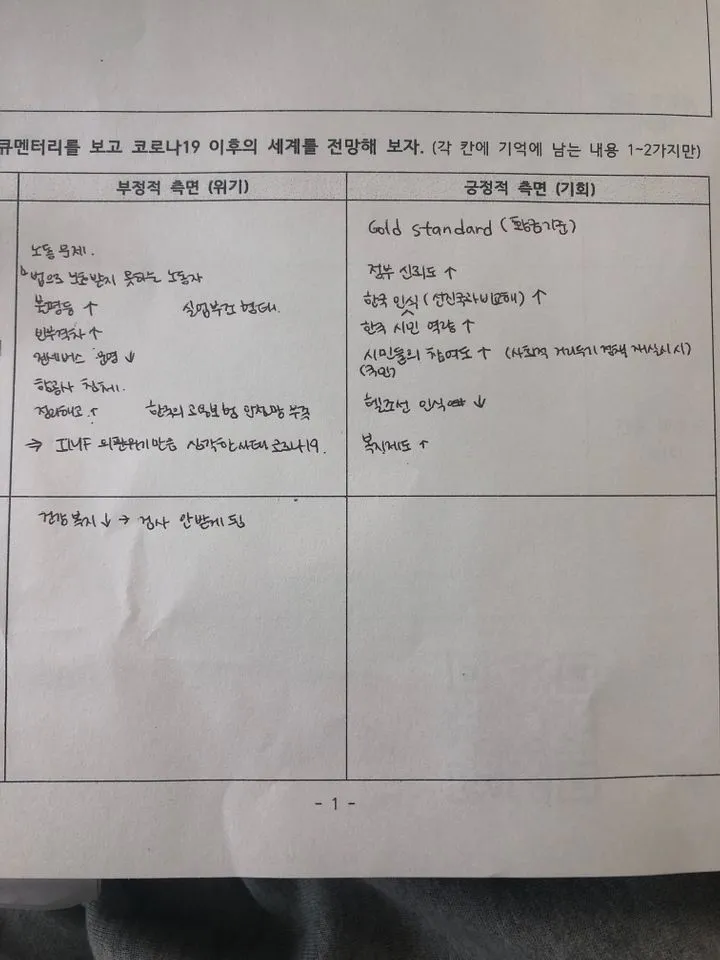 큐멘터리를 보고 코로나19 이후의 세계를 전망해 보자. (각 칸에 기억에 남는 내용 1~2가지만)
부정적 측면 (위기)
긍정적 측면 (기회)
노동 문제.
법으로 보호받지 못하는 노동자
불평등 ↑
빈부격차 ↑
전세버스 운영 ↓
항공사 침체.
정리해고 ↑ 한국의 고용보험 안전망 부족
⇒ IMF 외환위기만큼 심각한 사태 코로나19.
Gold standard (황금기준)
정부 신뢰도 ↑
한국 인식 (선진국과 비교해) ↑
한국 시민 역량 ↑
시민들의 참여도 ↑ (사회적 거리두기 정책 재실시 시)
(국민)
헬조선 인식 ↓
복지제도 ↑
건강 복지 ↓ → 검사 안받게 됨
- 1 -